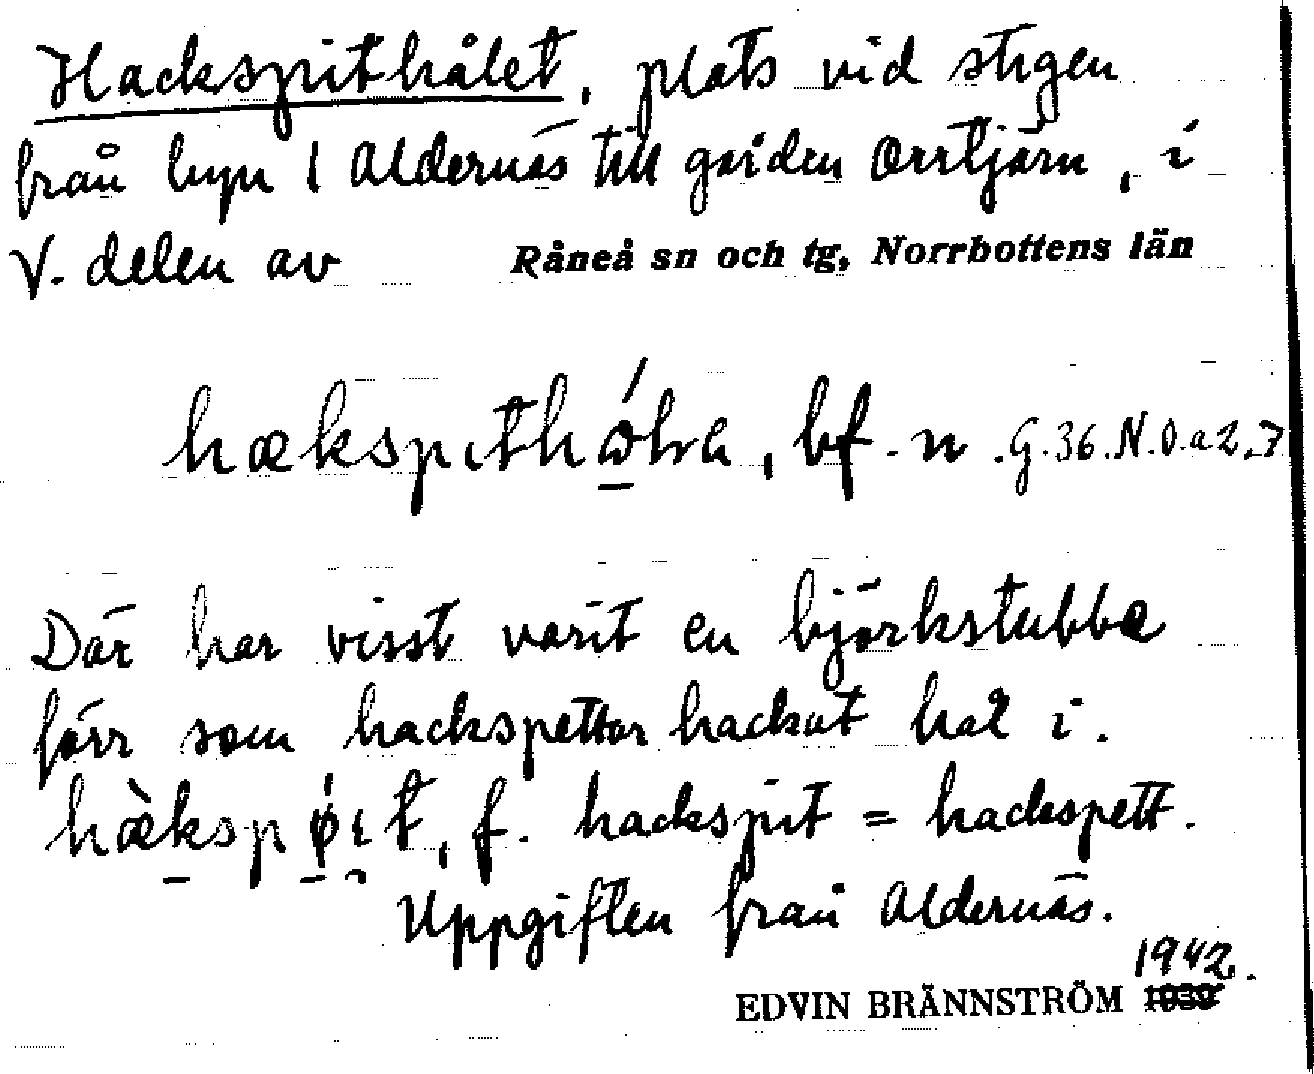 Hackspithålet, plats vid stigen
från byn i Aldernäs till gården Orrtjärn, i
V. delen av Råneå sn och tg, Norrbottens län
bf. n. G.36.N.O.a 2,7
Där har visst varit en björkstubbe
förr som hackspettar hackat hål i.
f. hackspit = hackspett.
Uppgiften från Aldernäs.
1942.
EDVIN BRÄNNSTRÖM 1939